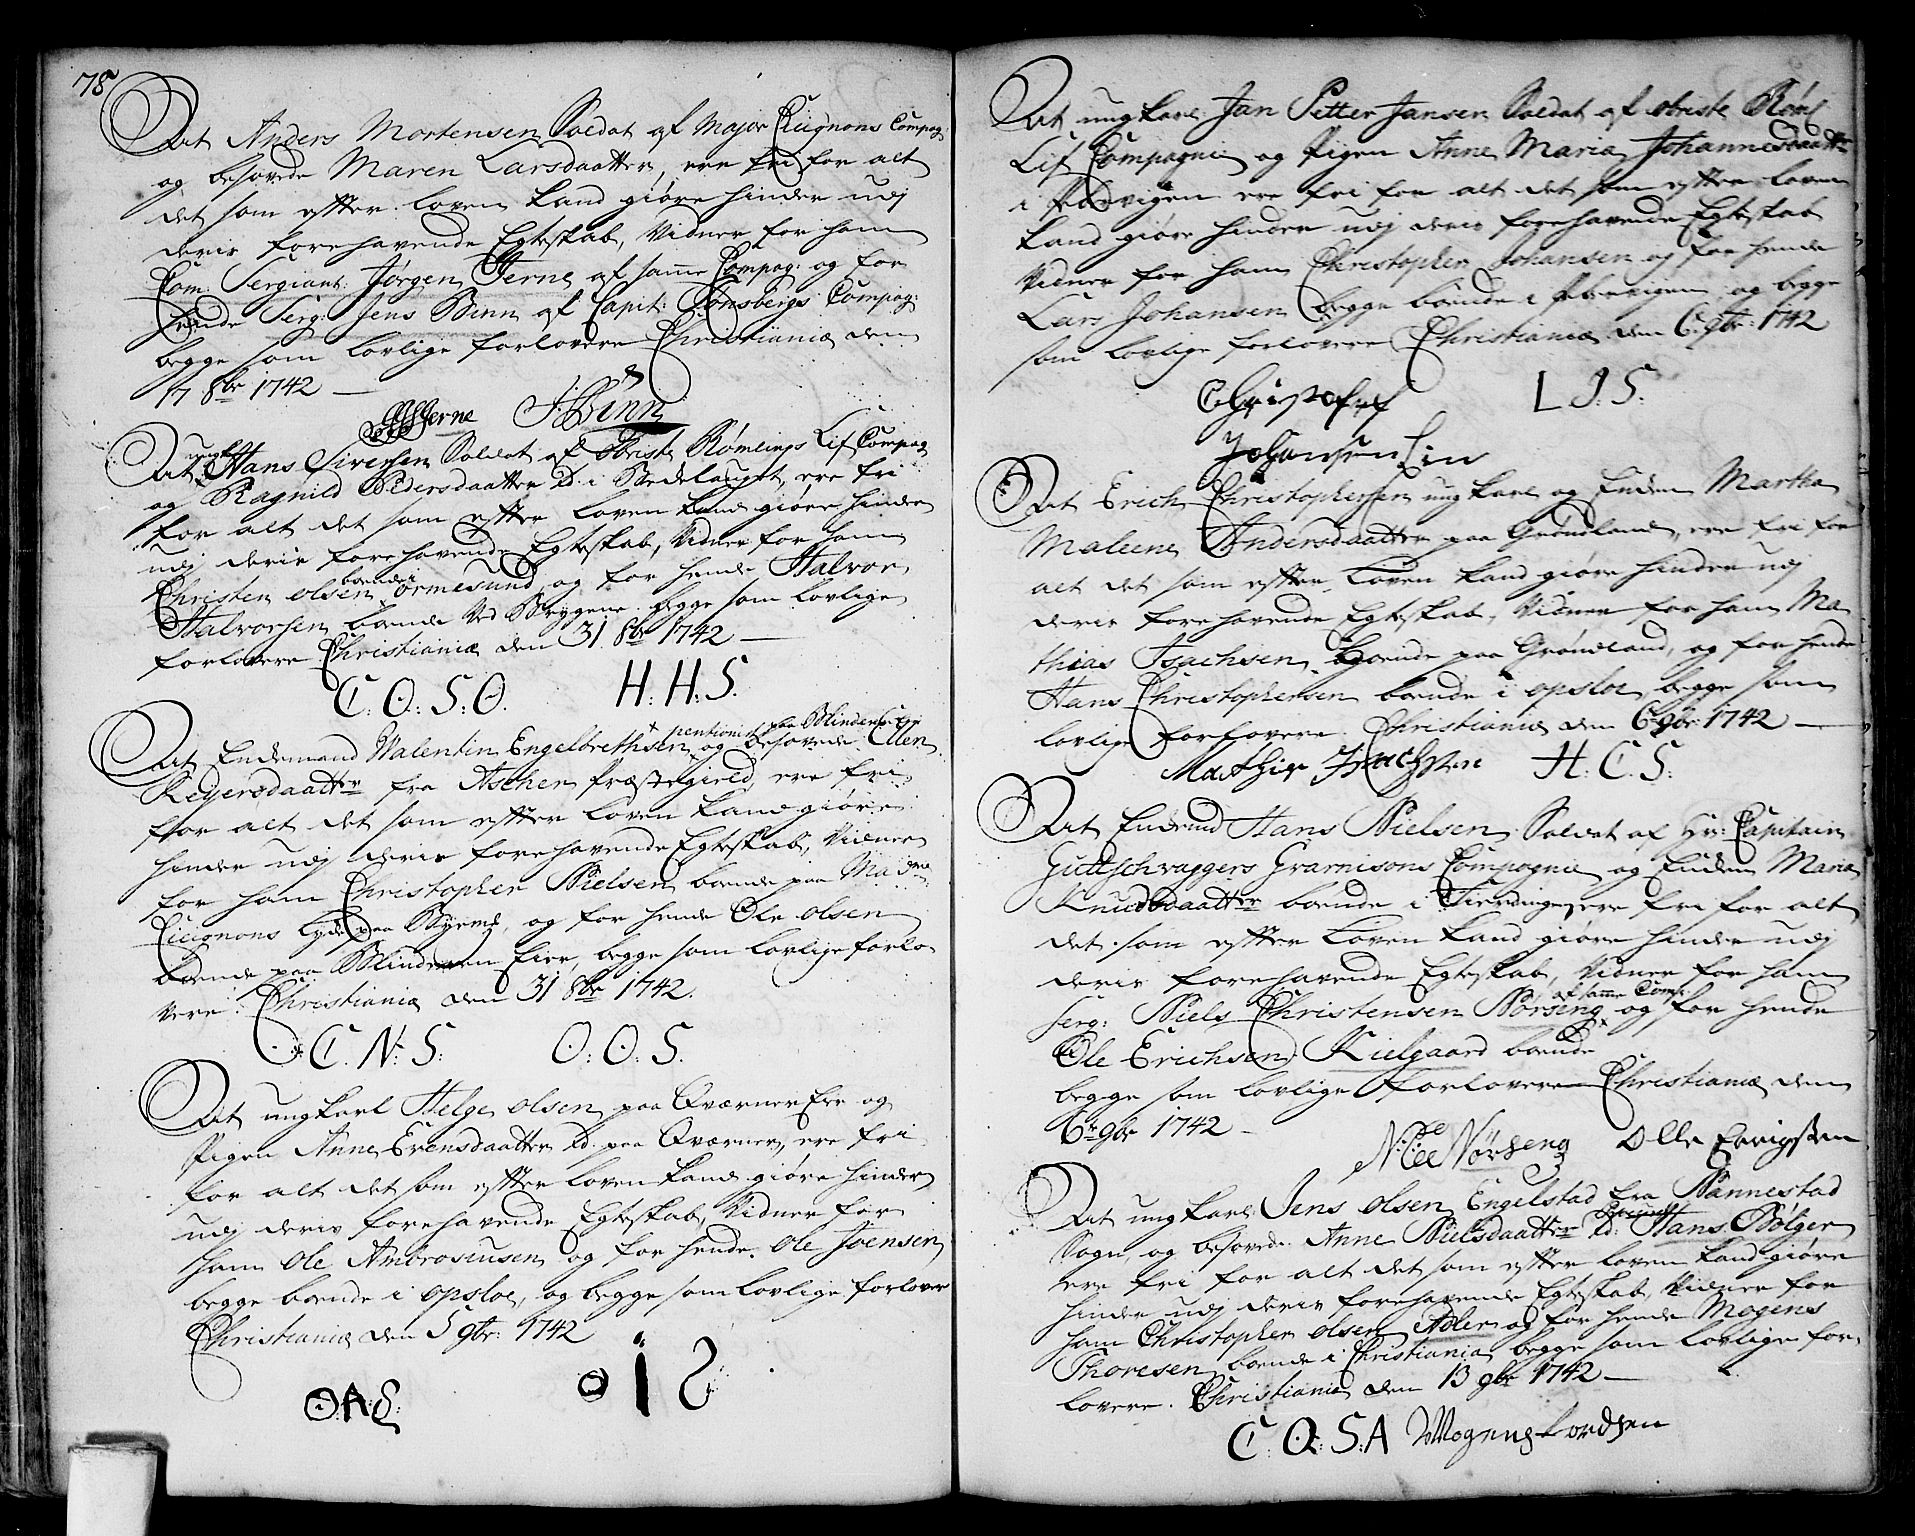 78
At Anders Mortensen Soldat af Major Cicignons Compag:
og besovede Maren Larsdaatter, ere fri for alt
det som effter loven kand giøre hinder udj
deris forehavende Egteskab, Vidner for ham
Com: Sergiant: Jørgen Jerne af samme Compag: og for
hende Serg: Jens Binn af Capit: Tønsbergs Compag:
begge som lovlige forlovere Christiania den
17 8br 1742 —
Jerne J: Binn
At ungk: Hans Siversen Soldat af Obriste Rømlings Lif Compag
og Ragnild Pedersdaatter td: i ere fri
for alt det som effter loven kand giøre hinder
udj deris forehavende Egteskab, Vidner for ham
Christen olsen boende i ormesund, og for hende Halvor
Halvorsen boende Ved Brygene. begge som lovlige
forlovere Christiania den 31 8br 1742 —
C: O: S: O. H: H: S.
At Enkemand Walentin Engelbrethsen pentionist paa Blindern Eje og besovede Ellen
Reyersdaatter fra Ascher præstegield, ere fri
for alt det som effter loven kand giøre
hinder udj deris forehavende Egteskab, Vidner
for ham Christopher Nielsen boende paa Madme
Cicignons Løcke paa Byens, og for hende Ole olsen
boende paa Blinderen Eier, begge som lovlige forlo-
vere: Christiania den 31 8br 1742.
C. N: S: O: O: S.
At ungkarl Helge olsen paa Qværner Eie og
Pigen Anne Evensdaatter td: paa Qværner, ere fri
for alt det som effter loven kand giøre hinder
udj deris forehavende Egteskab, Vidner for
ham Ole Ambrosiusen og for hende Ole Joensen
begge boende i opsloe, og begge som lovlige forlover
Christiania den 5 9br: 1742
O: A: S: O I S
At ungkarl Jan Petter Jansen Soldat af obriste Røml
Lif Compagnie og Pigen Anne Maria Johannesdaatter
i ere fri for alt det som effter loven
kand giøre hinder udj deris forehavende Egteskab
Vidner for ham Christopher Johansen og for hende
Lars Johansen begge boende i og begge
som lovlige forlovere Christiania den 6: 9br: 1742
Christoffer L J: S.
Johansen
At Erich Christophersen ungkarl og Enken Martha
Maleene Andersdaatter paa Grønland, ere fri for
alt det som effter Loven kand giøre hinder udj
deris forehavende Egteskab, Vidner for ham Ma
thias Isachsen boende paa Grønland, og for hende
Hans Christophersen boende i opsloe begge som
lovlige forlovere Christiania den 6 9br: 1742 —
Mathis Isachsen H: C: S:
At Enkemd Hans Nielsen Soldat af Hr: Capitain
Guttschvaggers Gvarnisons Compagnie og Enken Maria
Knudsdaatter boende i ere fri for alt
det som effter Loven kand giøre hinder udj
deris forehavende Egteskab, Vidner for ham
Serg: Niels Christensen Nørseng af samme Comp: og for hende
Ole Erichsen Kielgaard boende
begge som lovlige forlovere Christiania den
6 9br 1742 —
Niels Nørseng Olle Erichsen
At ungkarl Jens olsen Engelstad fra Nannestad
Sogn, og besovede Anne Nielsdaatter td: Hans Bølger
ere fri for alt det som effter loven kand giøre
hinder udj deris forehavende Egteskab, Vidner for
ham Christopher olsen Adler og for hende Mogens
Thoresen boende i Christiania begge som lovlige for-
lovere. Christiania den 13 9br 1742 —
C: O: S: A Mogens